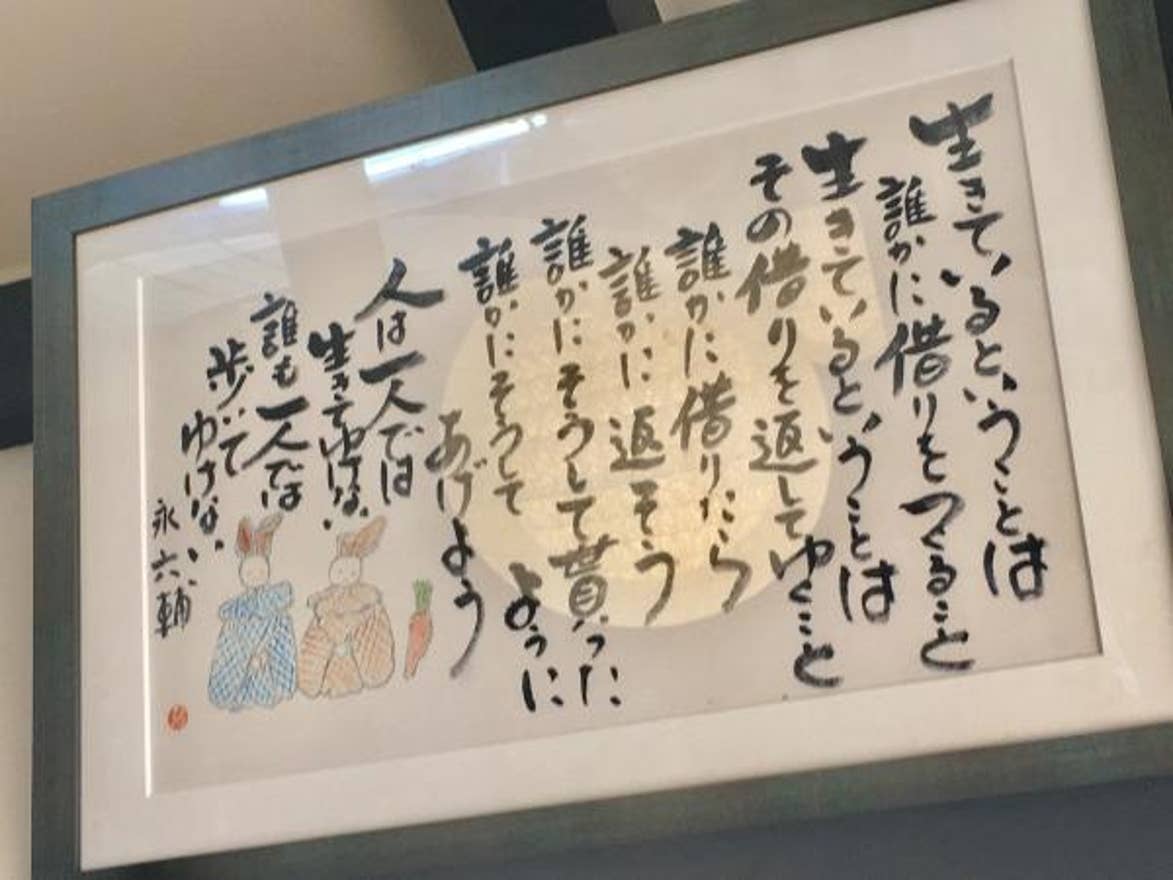 生きているということは
誰かに借りをつくること
生きているということは
その借りを返してゆくこと
誰かに借りたら
誰かに返そう
誰かにそうして貰った
ように
誰かにそうして
あげよう
人は一人では
生きてゆけない
誰も一人では
歩いて
ゆけない
永六輔